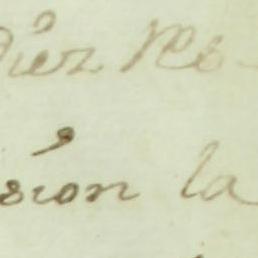 Diez Res-
sion la